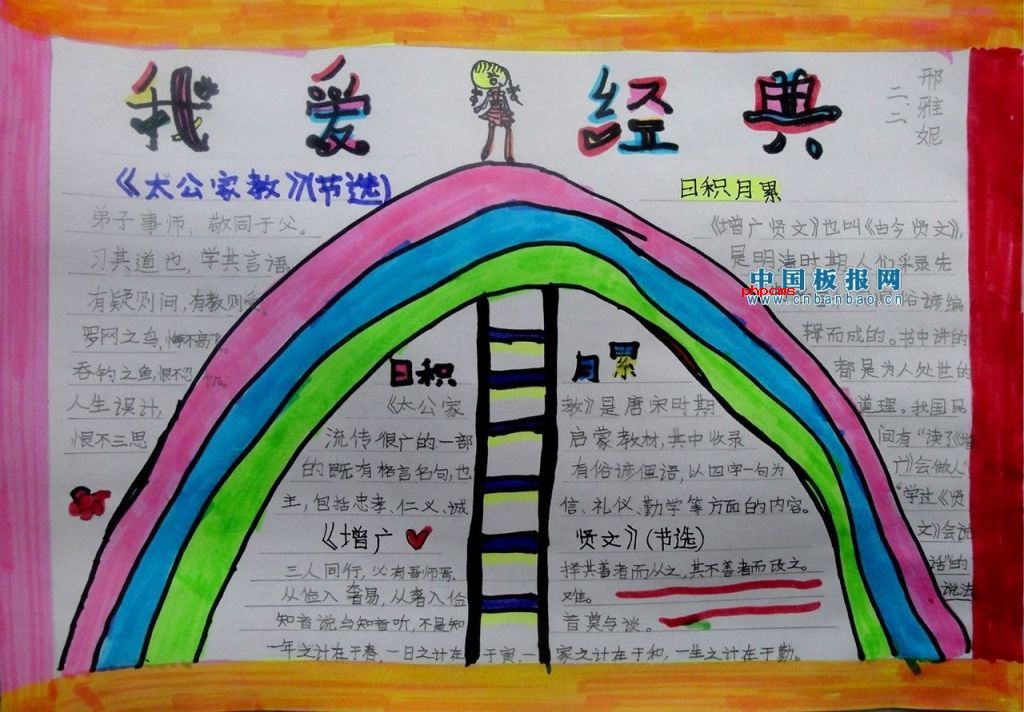 我爱经典
邢雅妮
二、二
《太公家教》(节选)
弟子事师，敬同于父。
习其道也，学其言语。
有疑则问，有教则
罗网之鸟，悔不高飞
吞钩之鱼，恨不忍饥
人生误计，
恨不三思
日积月累
《增广贤文》也叫《古今贤文》，
是明清时期人们采录先
俗谚编
辑而成的。书中讲的
都是为人处世的
道理。我国民
间有“读了《增
广》会做人”
“学过《贤
文》会说
话”的
说法
中国板报网
phpcms
www.cnbanbao.cn
日积月累
《太公家教》是唐宋时期
流传很广的一部启蒙教材，其中收录
的既有格言名句，也有俗谚俚语，以四字一句为
主，包括忠孝、仁义、诚信、礼仪、勤学等方面的内容。
《增广贤文》(节选)
三人同行，必有吾师焉，择其善者而从之，其不善者而改之。
从俭入奢易，从奢入俭难。
知音说与知音听，不是知音莫与谈。
一年之计在于春，一日之计在于寅，一家之计在于和，一生之计在于勤。